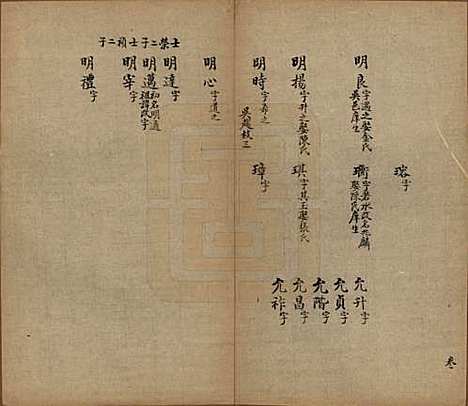 瑢字
明良字遇之娶金氏吳邑庠生
璛字若水改名兆麟娶陳氏庠生
允升字
允貞字
允階字
明揚字升之娶陳氏
琪字其玉娶張氏
允昌字
允祚字
明時字
璋字
吳趨枝三
明心字道之
士榮二子士禎二子
明達字
明邁初名明道祖諱改字
明宰字
明禮字